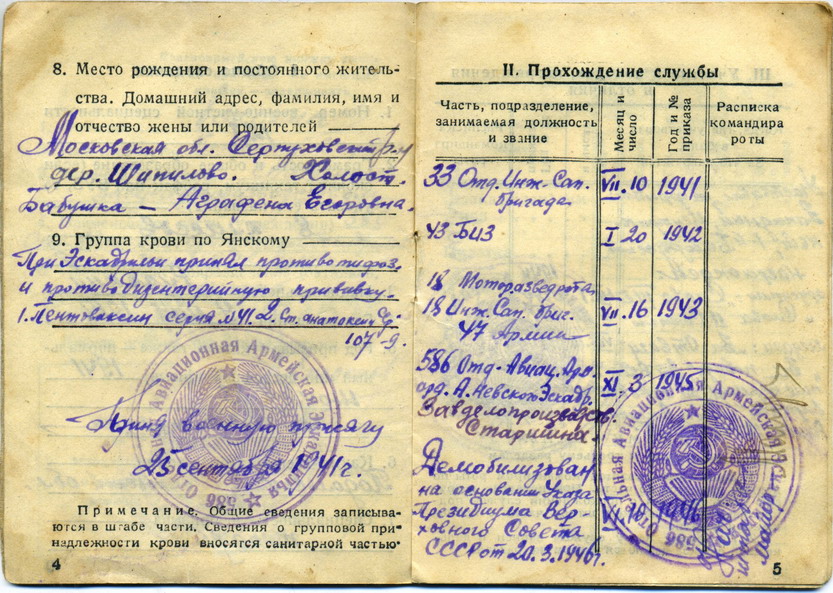 8. Место рождения и постоянного житель-
ства. Домашний адрес, фамилия, имя и
отчество жены или родителей
Московская обл. Серпуховский р-н
дер. Шипилово. Холост.
Бабушка — Аграфена Егоровна.
9. Группа крови по Янскому
При Эскадрильи принял противотифоз.
и противодизентерийную прививку.
1. Пентоваксин серия №41. 2. Ст. анатоксин
107-9.
Прин. военную присягу
25 сентября 1941 г.
586 Отдельная Авиационная Армейская Эскадрилья
Примечание. Общие сведения записыва-
ются в штабе части. Сведения о групповой при-
надлежности крови вносятся санитарной частью.
4
II. Прохождение службы
Часть, подразделение, занимаемая должность и звание
Месяц и число
Год и № приказа
Расписка командира роты
33 Отд. Инж. Сап. VII. 10 1941
бригада
43 БИЗ I 20 1942
18 Моторазведрота,
18 Инж. Сап. бриг. VII. 16 1943
47 Армии
586 Отд. Авиац. Арм.
орд. А. Невского Эскадр. XI. 3 1945
Завделопроизводст.
Старшина.
Демобилизован
на основании Указа
Президиума Вер-
ховного Совета VI. 1946
СССР от 20.3.1946 г.
586 Отдельная Авиационная Армейская Эскадрилья
майор
5